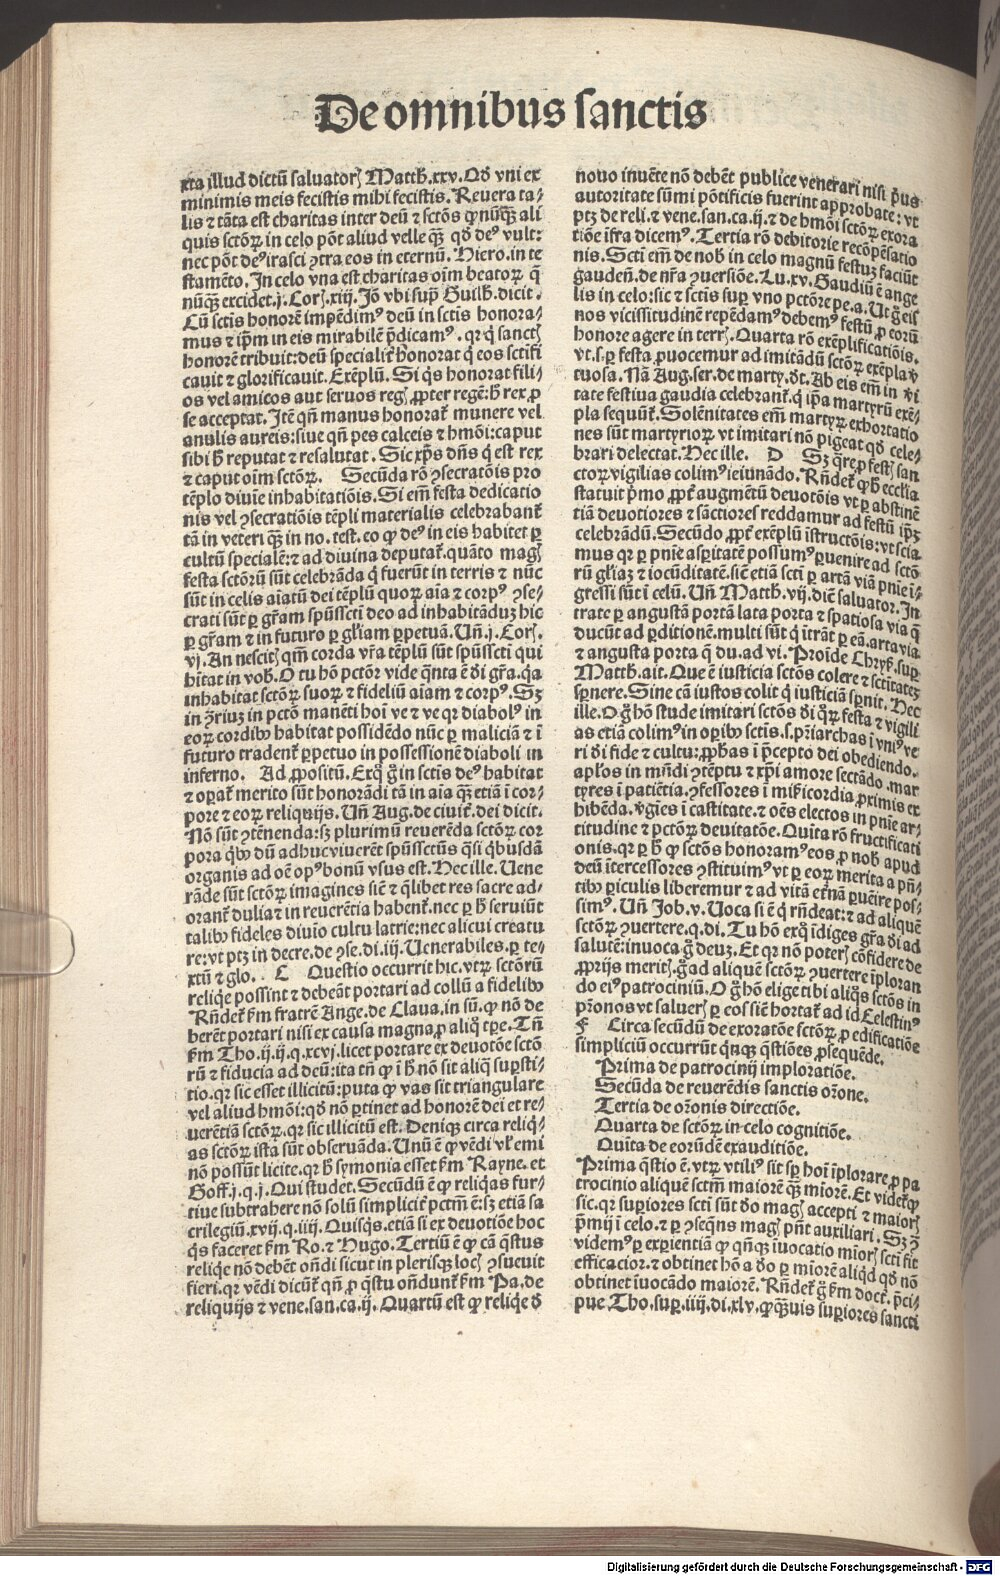 De omnibus sanctis
xta illud dictū saluatorꝭ Matth̄.xxv. Qd̄ vni ex
minimis meis fecistis mihi fecistis. Reuera ta-
lis ⁊ tāta est charitas inter deū ⁊ sctōs ꝙ nūqꝫ ali
quis sctōꝝ in celo pōt aliud velle qꝫ qd̄ deꝰ vult:
nec pōt deꝰ irasci ꝯtra eos in eternū. Hiero. in te
stamēto. In celo vna est charitas oīm beatoꝝ q̄
nūqꝫ excidet. j. Corꝭ. xiij. Jō vbi sup̄ Guilh̄. dicit.
Cū sctis honorē impēdimꝰ deū in sctis honora-
mus ⁊ ip̄m in eis mirabilē p̄dicamꝰ. qꝛ q̇ sanctꝭ
honorē tribuit: deū specialiṫ honorat q̇ eos sctifi
cauit ⁊ glorificauit. Exēplū. Si q̇s honorat fili-
os vel amicos aut seruos regꝭ ꝓpter regē: h̄ rex ꝓ
se acceptat. Jtē qn̄ manus honorat̄ munere vel
anulis aureis: siue qn̄ pes calceis ⁊ hmōi: caput
sibi h̄ reputat ⁊ resalutat. Sic xp̄s dn̄s q̇ est rex
⁊ caput oīm sctōꝝ. Secūda rō ꝯsecratōis pro
tēplo diuīe inhabitatiōis. Si em̄ festa dedicatio
nis vel ꝯsecratiōis tēpli materialis celebrabant̄
tā in veteri qꝫ in no. test. eo ꝙ deꝰ in eis habitet ꝑ
cultū specialē: ⁊ ad diuina deputat̄. quāto magꝭ
festa sctōꝝ sūt celebrāda q̇ fuerūt in terris ⁊ nūc
sūt in celis aīatū dei tēplū quoꝝ aīa ⁊ corpꝰ ꝯse-
crati sūt ꝑ gr̄am spūssctī deo ad inhabitāduꝫ hic
ꝑ gr̄am ⁊ in futuro ꝑ gl̄iam ꝑpetuā. Un̄. j. Corꝭ.
vj. An nescitꝭ qm̄ corda vr̄a tēplū sūt spūsscti qui
hītat in vob̄. O tu hō pctōr vide qn̄ta ē di gr̄a. q̇a
inhabitat sctōꝝ suoꝝ ⁊ fideliū aīam ⁊ corpꝰ. Sꝫ
in ꝯ̄riuꝫ in pctō manēti hoī ve ⁊ ve qꝛ diabolꝰ in
eoꝝ cordibꝰ habitat possidēdo nūc ꝑ maliciā ⁊ ī
futuro tradent̄ ꝑpetuo in possessionē diaboli in
inferno. Ad ꝓpositū. Exq̇ g̊ in sctis deꝰ habitat
⁊ oꝑat̄ merito sūt honorādi tā in aīa qꝫ etiā ī cor-
pore ⁊ eoꝝ reliquijs. Un̄ Aug. de ciuit̄. dei dicit.
Nō sūt ꝯtēnenda: sꝫ plurimū reuerēda sctōꝝ cor
pora q̇bꝰ dū adhuc viuerēt spūssctūs q̄si q̇busdā
organis ad oē opꝰ bonū vsus est. Hec ille. Uene
rāde sūt sctōꝝ imagines sic̄ ⁊ q̄libet res sacre ad-
orant̄ dulia ⁊ in reuerētia habent̄. nec ꝑ h̄ seruiūt
talibꝰ fideles diuīo cultu latrie: nec alicui creatu
re: vt ptꝫ in decre. de ꝯse. di. iij. Uenerabiles. ꝑ te-
xtū ⁊ glo.. C Questio occurrit hic. vtꝝ sctōrū
reliq̄e possint ⁊ debeāt portari ad collū a fidelibꝰ
Rn̄det̄ ẜm fratrē Ange. de Claua. in sū. ꝙ nō de
berēt portari nisi ex causa magna ꝓ aliq̊ tp̄e. Tn̄
ẜm Tho. ij. ij. q. xcvj. licet portare ex deuotōe sctō
rū ⁊ fiducia ad deū: ita tn̄ ꝙ ī h̄ nō sit aliq̇ suꝑsti-
tio. qꝛ sic esset illicitū: puta ꝙ vas sit triangulare
vel aliud hmōi: qd̄ nō ꝑtinet ad honorē dei et re-
uerētiā sctōꝝ. qꝛ sic illicitū est. Deniqꝫ circa reliq̇-
as sctōꝝ ista sūt obseruāda. Unū ē ꝙ vēdi vl̄ emi
nō possūt licite. qꝛ h̄ symonia esset ẜm Rayne. et
Goff. j. q. j. Qui studet. Secūdū ē ꝙ reliq̇as fur-
tiue subtrahere nō solū simplicit̄ pctm̄ ē: sꝫ etiā sa
crilegiū. xvij. q. iiij. Quisq̇s. etiā si ex deuotiōe hoc
q̇s faceret ẜm Ro. ⁊ Hugo. Tertiū ē ꝙ cā q̄stus
reliq̄e nō debēt on̄di sicut in plerisqꝫ locꝭ ꝯsueuit
fieri. qꝛ vēdi dicūt̄ qn̄ ꝓ q̄stu on̄dunt̄ ẜm Pa. de
reliquijs ⁊ vene. san. ca. ij. Quartū est ꝙ reliq̄e d̄
nouo inuēte nō debēt publice venerari nisi pͥus
autoritate sūmi pōtificis fuerint approbate: vt
ptꝫ de reli. ⁊ vene. san. ca. ij. ⁊ de hmōi sctōꝝ exora
tiōe īfra dicemꝰ. Tertia rō debitorie recōpēsatio
nis. Scti em̄ de nob̄ in celo magnū festuꝫ faciūt
gaudēn̄. de nr̄a ꝯuersiōe. Lu. xv. Gaudiū ē ange
lis in celo: sic ⁊ sctis suꝑ vno pctōre pe. a. Ut g̊ eis
nos vicissitudinē repēdamꝰ debemꝰ festū ꝓ eorū
honore agere in terrꝭ. Quarta rō exēplificatiōis.
vt. s. ꝑ festa ꝓuocemur ad imitādū sctōꝝ exēpla v̇
tuosa. Nā Aug. ser. de marty. d̄t. Ab eis em̄ in v̇i
tate festiua gaudia celebrant̄. q̇ ip̄a martyrū exē-
pla sequūt̄. Solēnitates em̄ martyꝝ exhortatio
nes sūt martyrioꝝ vt imitari nō pigeat qd̄ cele-
brari delectat. Hec ille. D Sꝫ q̄re ꝓ festꝭ san
ctoꝝ vigilias colimꝰ ieiunādo. Rn̄det̄ ꝙ h̄ eccl̄ia
statuit pͥmo ꝓpt̄ augmētū deuotōis vt ꝑ abstinē
tiā deuotiores ⁊ sāctiores reddamur ad festū ip̄ꝫ
celebrādū. Secūdo ꝓpt̄ exēplū īstructōis: vt scia
mus qꝛ ꝑ pnīe asꝑitatē possumꝰ ꝑuenire ad sctō
rū gl̄iaꝫ ⁊ iocūditatē. sic̄ etiā scti ꝑ artā viā pnīe ī-
gressi sūt ī celū. Un̄ Matth̄. vij. dic̄ saluator. In
trate ꝑ angustā portā lata porta ⁊ spatiosa via q̄
ducūt ad ꝑditionē. multi sūt q̇ itrāt ꝑ eā. arta via
⁊ angusta porta q̄ du. ad vi. Proīde Chryẜ. suꝑ
Matth̄. ait. Que ē iusticia sctōs colere ⁊ sctitateꝫ
sꝑnere. Sine cā iustos colit q̇ iusticiā sꝑnit. Hec
ille. O g̊ hō stude imitari sctōs di q̊ꝝ festa ⁊ vigili
as etiā colimꝰ in oꝑibꝰ sctis. s. pr̄iarchas ī vniꝰ ve
ri di fide ⁊ cultu: ꝓph̄as ī p̄cepto dei obediendo.
apl̄os in mūdi ꝯtēptu ⁊ xp̄i amore sectādo. mar
tyres ī patiētia. ꝯfessores ī mīẜicordia ꝓximis ex
hibēda. v̇gīes ī castitate. ⁊ oēs electos in pnīe ar-
titudine ⁊ pctōꝝ deuitatōe. Quīta rō fructificati
onis. qꝛ ꝑ h̄ ꝙ sctōs honoramꝰ eos ꝓ nob̄ apud
deū ītercessores ꝯstituimꝰ vt ꝑ eoꝝ merita a pn̄-
tibꝰ ꝑiculis liberemur ⁊ ad vitā et̄nā ꝑuēire pos-
simꝰ. Un̄ Job. v. Uoca si ē q̇ rn̄deat: ⁊ ad aliquē
sctōꝝ ꝯuertere. q. di. Tu hō exq̊ īdiges gr̄a di ad
salutē: inuoca g̊ deuꝫ. Et qꝛ nō poterꝭ cōfidere de
ꝓprijs meritꝭ. g̊ ad aliquē sctōꝝ ꝯuertere īploran
do eiꝰ patrociniū. O g̊ hō elige tibi aliq̇s sctōs in
pr̄onos vt saluerꝭ ꝑ eos sic̄ hortat̄ ad id Celestinꝰ
F Circa secūdū de exoratōe sctōꝝ ꝓ edificatiōe
simpliciū occurrūt q̇nqꝫ q̄stiōes ꝓsequēde.
Prima de patrocinij imploratiōe.
Secūda de reuerēdis sanctis or̄one.
Tertia de or̄onis directiōe.
Quarta de sctōꝝ in celo cognitiōe.
Quīta de eorūdē exauditiōe.
Prima q̄stio ē. vtꝝ vtiliꝰ sit sꝑ hoī īplorare ꝓ pa
trocinio aliquē sctm̄ maiorē qꝫ miorē. Et videt̄ ꝙ
sic. qꝛ suꝑiores scti sūt do magꝭ accepti ⁊ maiorꝭ
p̄mij ī celo. ⁊ ꝑ ꝯseq̄ns magꝭ pn̄t auxiliari. Sꝫ ꝯ̄
videmꝰ ꝑ exꝑientiā ꝙ qn̄qꝫ īuocatio miorꝭ scti fit
efficacior. ⁊ obtinet hō a do ꝑ miorē aliqd̄ qd̄ nō
obtinet īuocādo maiorē. Rn̄det̄ g̊ ẜm doct̄. p̄ci-
pue Tho. suꝑ. iiij. di. xlv. ꝙ qꝫuis suꝑiores sancti
Digitalisierung gefördert durch die Deutsche Forschungsgemeinschaft - DFG